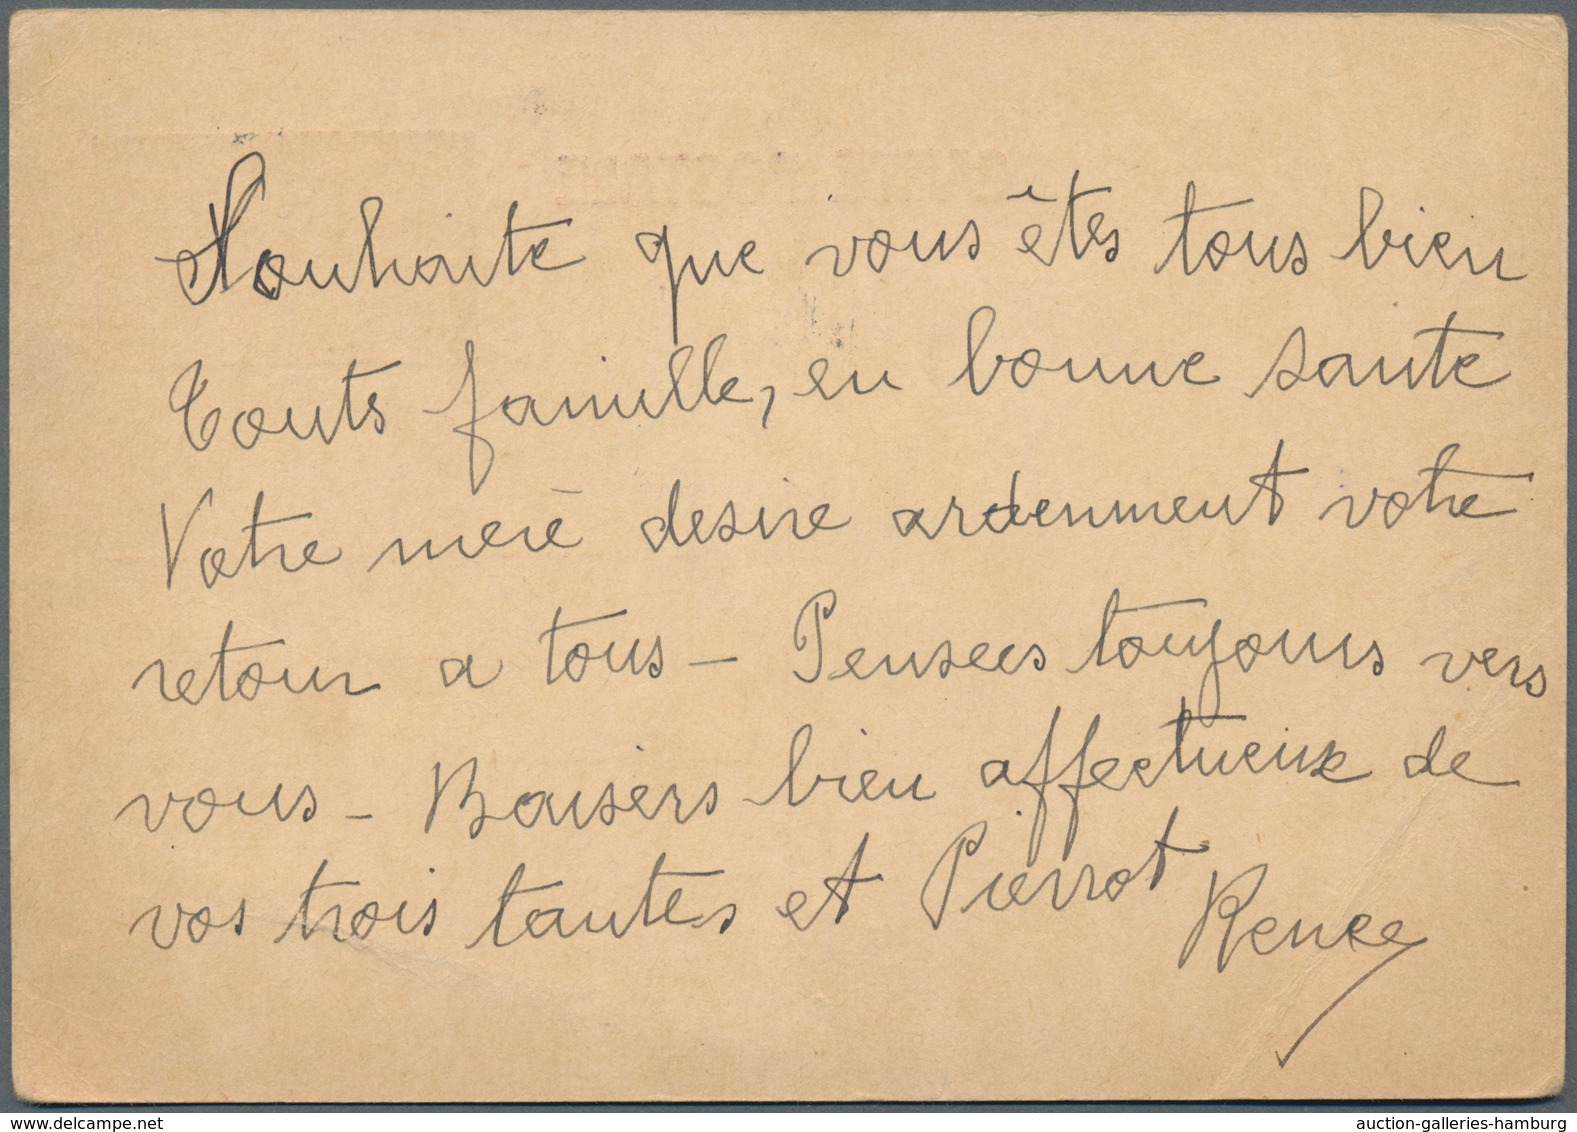 Souhaite que vous êtes tous bien
Touts famille, en bonne sante
Votre merè desire ardenment votre
retour a tous – Pensees toujours vers
vous – Baisers bien affectueux de
vos trois tantes et Pierrot
Renee
www.delcampe.net
auction-galleries-hamburg